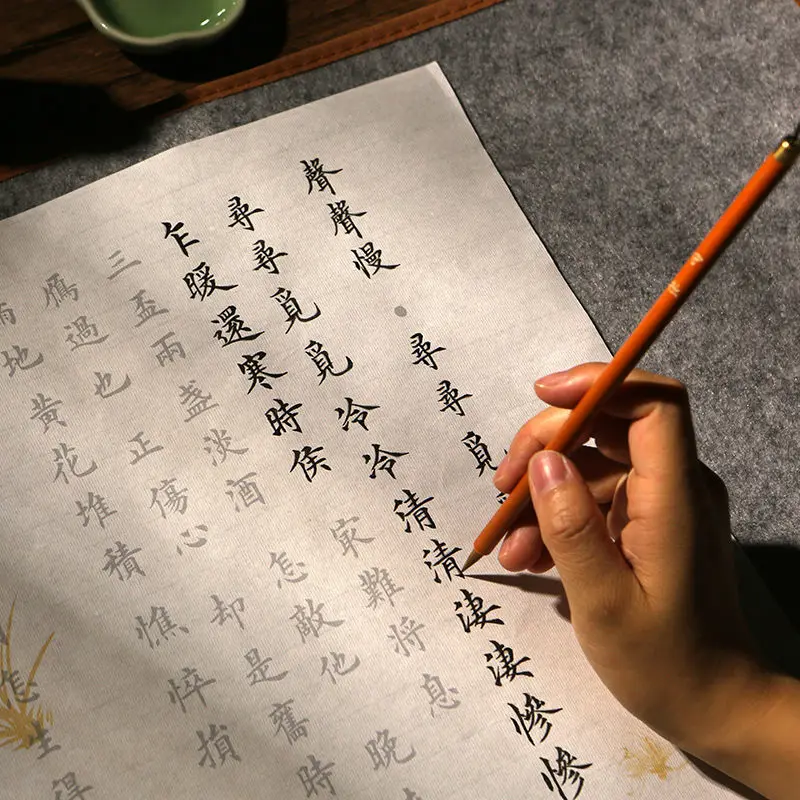 聲聲慢·尋尋覓
尋尋覓覓冷冷清清淒淒慘慘
乍暖還寒時侯㝡難將息
三盃兩盞淡酒怎敵他晚
鴈過也正傷心却是舊時
地黃花堆積憔悴損
怎生得